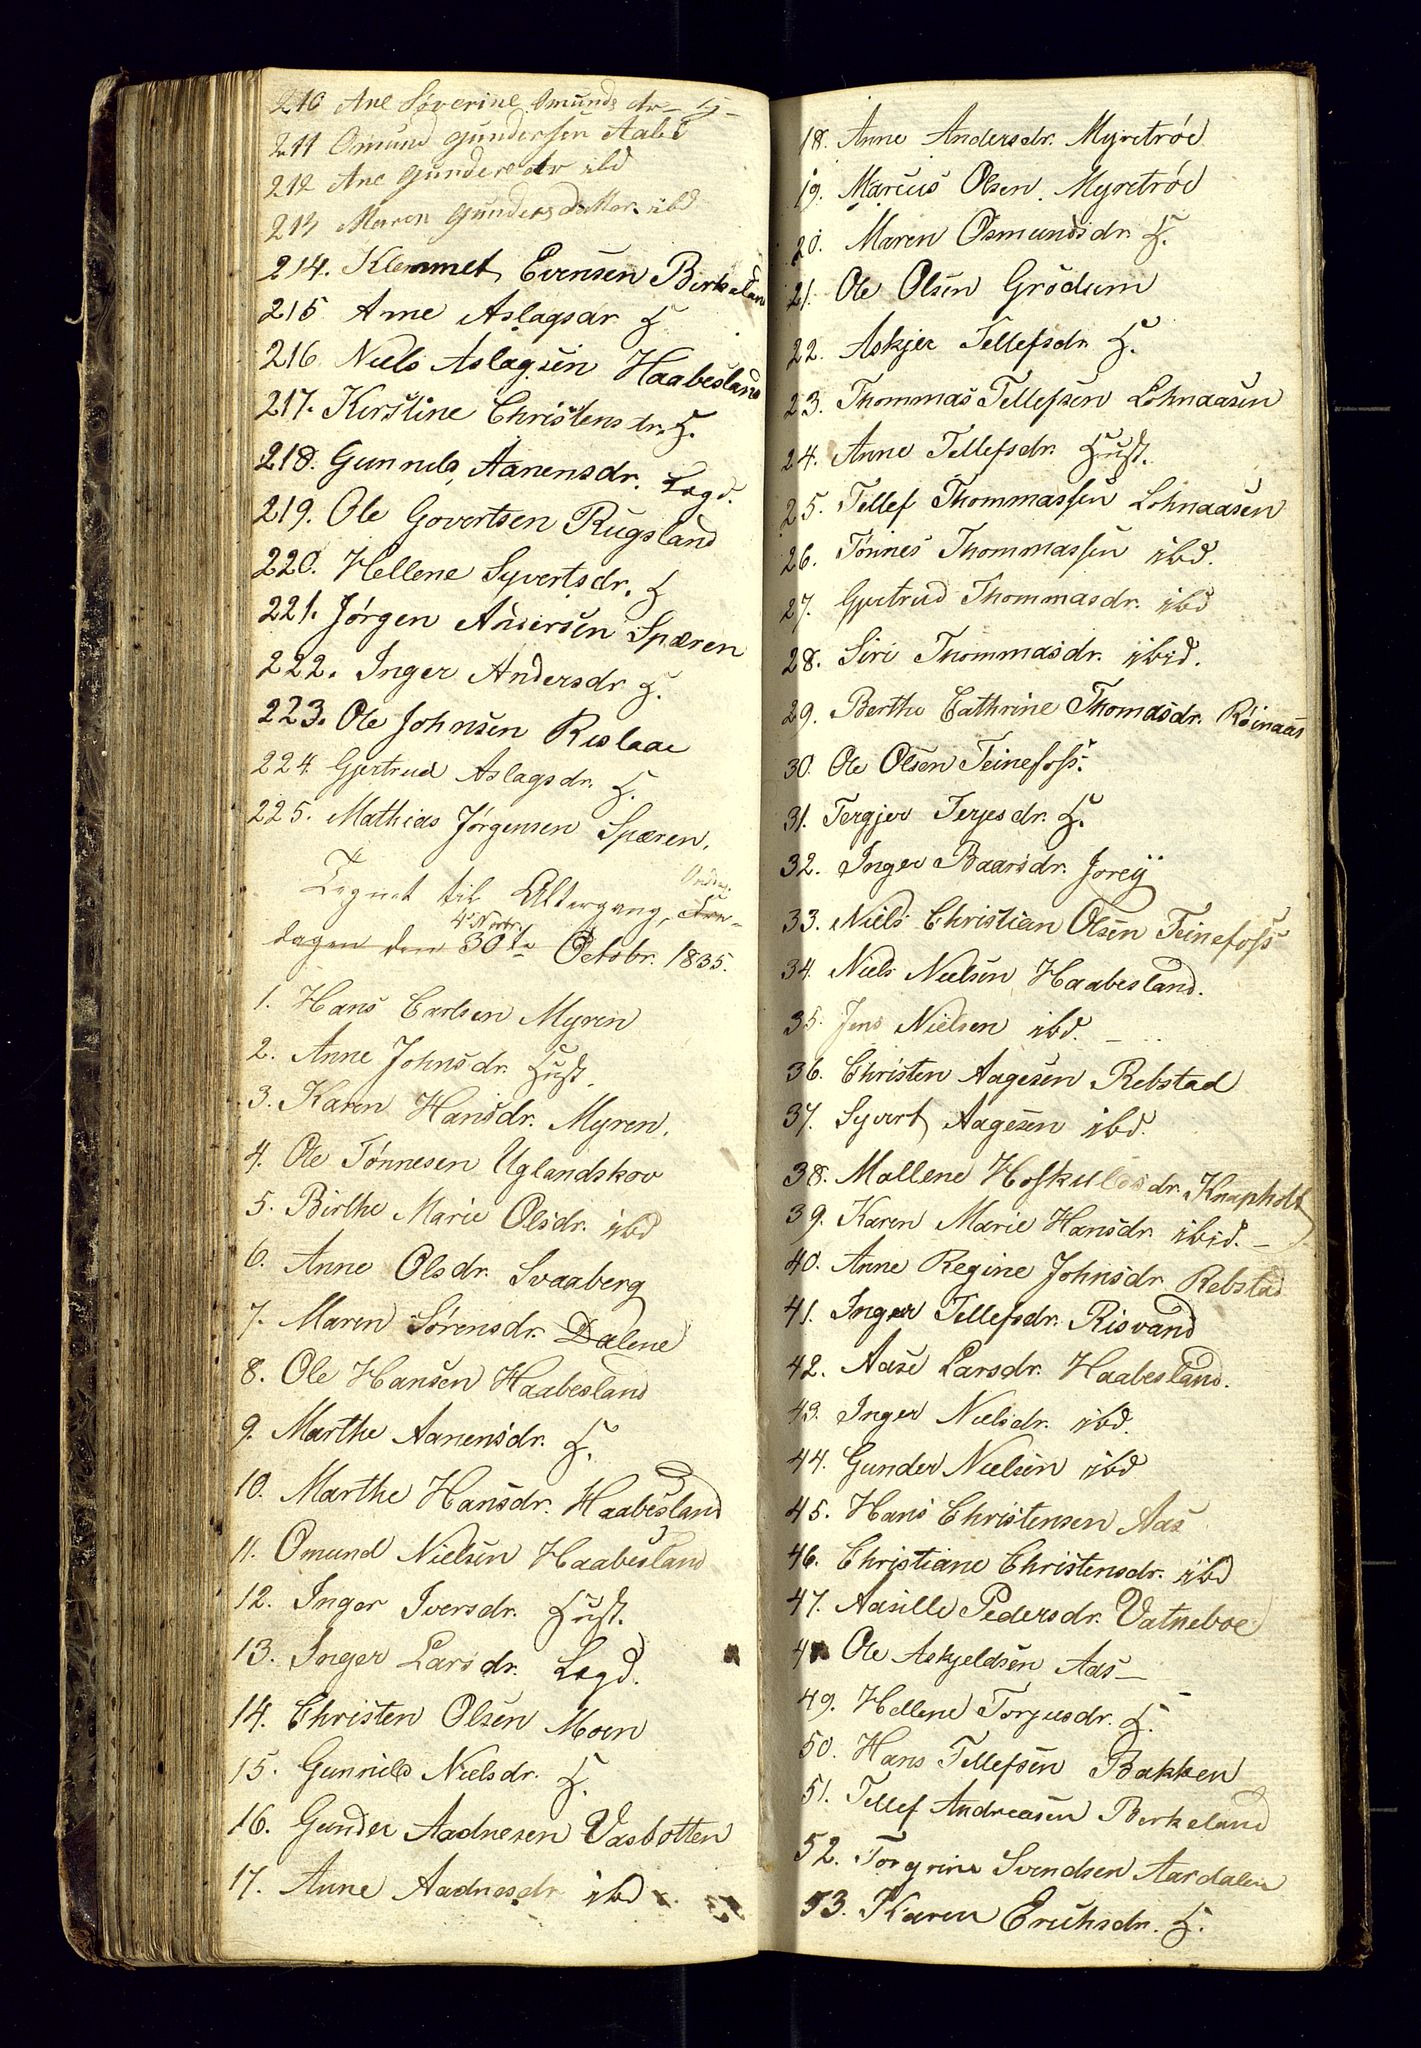 210 Ane Severine Omunds dr - H -
211 Omund Gundersen Aabel
212 Ane Gundersdtr ibd
213 Maren Gundersdatter ibd
214. Klemmet Evensen Birkeland
215 Anne Aslagsdr H
216 Niels Aslagsen Haabesland
217. Kirstine Christensdr. H.
218. Gunnild Aanensdr. Lægd.
219. Ole Govertsen Rugsland
220. Hellene Syvertsdr. H
221. Jørgen Andersen Spæren
222. Inger Andersdr H.
223. Ole Johnsen Rislaae
224 Gjertrud Aslagsdr. H.
225. Mathias Jørgensen Spæren.
Tegnet til Altergang,
dagen den 30te 4de Novbr Octobr. 1835.
1. Hans Carlsen Myren
2. Anne Johnsdr. Hust.
3. Karen Hansdr. Myren.
4. Ole Tønnesen Uglandskov
5. Birthe Marie Olsdr. ibd
6. Anne Olsdr. Svaaberg
7. Maren Sørensdr. Dalene
8. Ole Hansen Haabesland
9. Marthe Aanensdr. H.
10. Marthe Hansdr. Haabesland
11. Omund Nielsen Haabesland
12. Inger Iversdr. Hust.
13. Inger Larsdr. Lægd.
14. Christen Olsen Moen
15. Gunnild Nielsdr. H.
16. Gunder Aadnesen Vasbotten
17. Anne Aadnesdr ibd
18. Anne Andersdr. Myretrøe
19. Marcus Olsen Myretrøe
20. Maren Osmundsdr. H.
21. Ole Olsen Grødum
22. Askjer Tellefsdr H.
23. Thommas Tellefsen Lohnaasen
24. Anne Tellefsdr. Hust.
25. Tellef Thommassen Lohnaasen
26. Tønnes Thommassen ibd.
27. Gjertrud Thommasdr. ibd
28. Siri Thommasdr. ibid.
29. Berthe Cathrine Thomasdr. Røinaas
30. Ole Olsen Teinefoss.
31. Tergjer Terjesdr. H.
32. Inger Baarsdr. Jorey
33. Niels Christian Olsen Teinefoss
34. Niels Nielsen Haabesland.
35. Jens Nielsen ibd. -
36. Christen Aagesen Rebstad
37. Syvert Aagesen ibd.
38. Mallene Hoskuldsdr. Knapholt
39. Karen Marie Hansdr. ibid. -
40. Anne Regine Johnsdr Rebstad
41. Inger Tellefsdr. Risvand
42. Aase Larsdr. Haabesland.
43. Inger Nielsdr. ibd.
44. Gunder Nielsen ibd
45. Hans Christensen Aas
46. Christiane Christensdr. ibd
47. Aasille Pedersdr. Vatneboe
48 Ole Askjeldsen Aas -
49. Hellene Torjusdr. H.
50. Hans Tellefsen Bakken
51. Tellef Andreasen Birkeland
52. Torgrim Svendsen Aardalen
53. Karen Erichsdr. H.